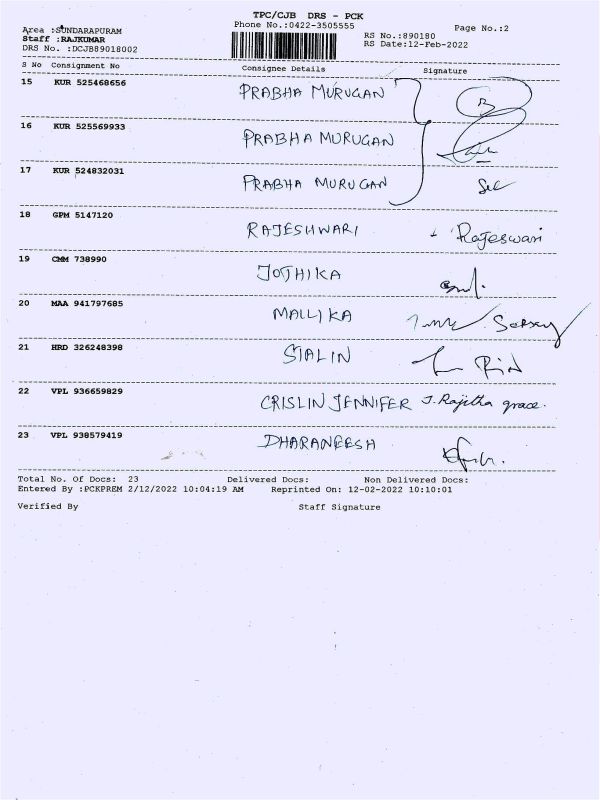 TPC/CJB DRS - PCK
Phone No.:0422-3505555
Page No.:2
Area :SUNDARAPURAM
Staff :RAJKUMAR
DRS No. :DCJB89018002
RS No.:890180
RS Date:12-Feb-2022
S No Consignment No Consignee Details Signature
15 KUR 525468656 PRABHA MURUGAN
16 KUR 525569933 PRABHA MURUGAN
17 KUR 524832031 PRABHA MURUGAN
18 GPM 5147120 RAJESHWARI Rajeswari
19 CMM 738990 JOTHIKA
20 MAA 941797685 MALLIKA
21 HRD 326248398 STALIN
22 VPL 936659829 CRISLIN JENNIFER J. Rajitha grace.
23 VPL 938579419 DHARANEESH
Total No. Of Docs: 23 Delivered Docs: Non Delivered Docs:
Entered By :PCKPREM 2/12/2022 10:04:19 AM Reprinted On: 12-02-2022 10:10:01
Verified By Staff Signature